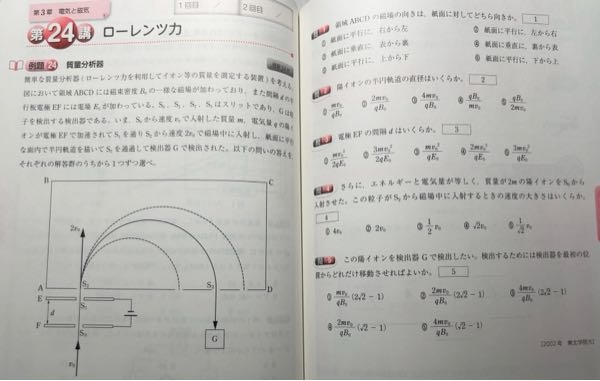 第3章 電気と磁気
1回目
2回目
第24講 ローレンツ力
例題24 質量分析器
簡単な質量分析器(ローレンツ力を利用してイオン等の質量を測定する装置)を考える。
図において領域ABCDには磁束密度B₀の一様な磁場が加わっており,また間隔dの平
行板電極EFには電場E₀が加わっている。S₁, S₂, S₃はスリットであり,Gは粒
子を検出する検出器である。いま,S₁から速度v₀で入射した質量m,電気量qの陽イ
オンが電極EFで加速されてS₁を通りS₂から速度2v₀で磁場中に入射し,紙面に平行
な面内で半円軌道を描いてS₃を通過して検出器Gで検出された。以下の問いの答えを,
それぞれの解答群のうちから1つずつ選べ。
B
C
2v₀
A
S₂
S₃
D
E
d
F
G
v₀
問1 領域ABCDの磁場の向きは,紙面に対してどちら向きか。 1
① 紙面に平行に,右から左 ② 紙面に平行に,左から右
③ 紙面に垂直に,表から裏 ④ 紙面に垂直に,裏から表
⑤ 紙面に平行に,上から下 ⑥ 紙面に平行に,下から上
問2 陽イオンの半円軌道の直径はいくらか。 2
① mv₀/qB₀ ② 2mv₀/qB₀ ③ 4mv₀/qB₀ ④ qB₀/mv₀ ⑤ qB₀/2mv₀
問3 電極EFの間隔dはいくらか。 3
① mv₀²/2qE₀ ② 3mv₀²/2qE₀ ③ mv₀²/qE₀ ④ 2mv₀²/qE₀ ⑤ 3mv₀²/qE₀
問4 さらに,エネルギーと電気量が等しく,質量が2mの陽イオンをS₀から
入射させた。この粒子がS₂から磁場中に入射するときの速度の大きさはいくらか。
4
① 4v₀ ② 2v₀ ③ 1/2 v₀ ④ √2v₀ ⑤ 1/√2 v₀
問5 この陽イオンを検出器Gで検出したい。検出するためには検出器を最初の位
置からどれだけ移動させればよいか。 5
① mv₀/qB₀ (2√2−1) ② 2mv₀/qB₀ (2√2−1) ③ 4mv₀/qB₀ (2√2−1)
④ 2mv₀/qB₀ (√2−1) ⑤ 4mv₀/qB₀ (√2−1)
[2002年 東北学院大]